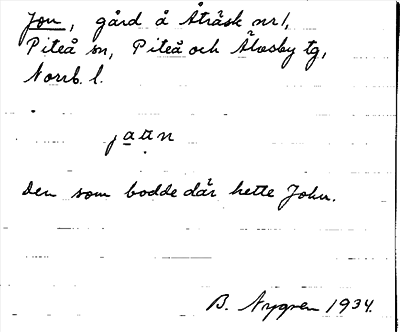 Jon, gård å Åträsk nr 1,
Piteå sn, Piteå och Älvsby tg,
Norrb. l.
jaan
Den som bodde där hette John.
B. Nygren 1934.